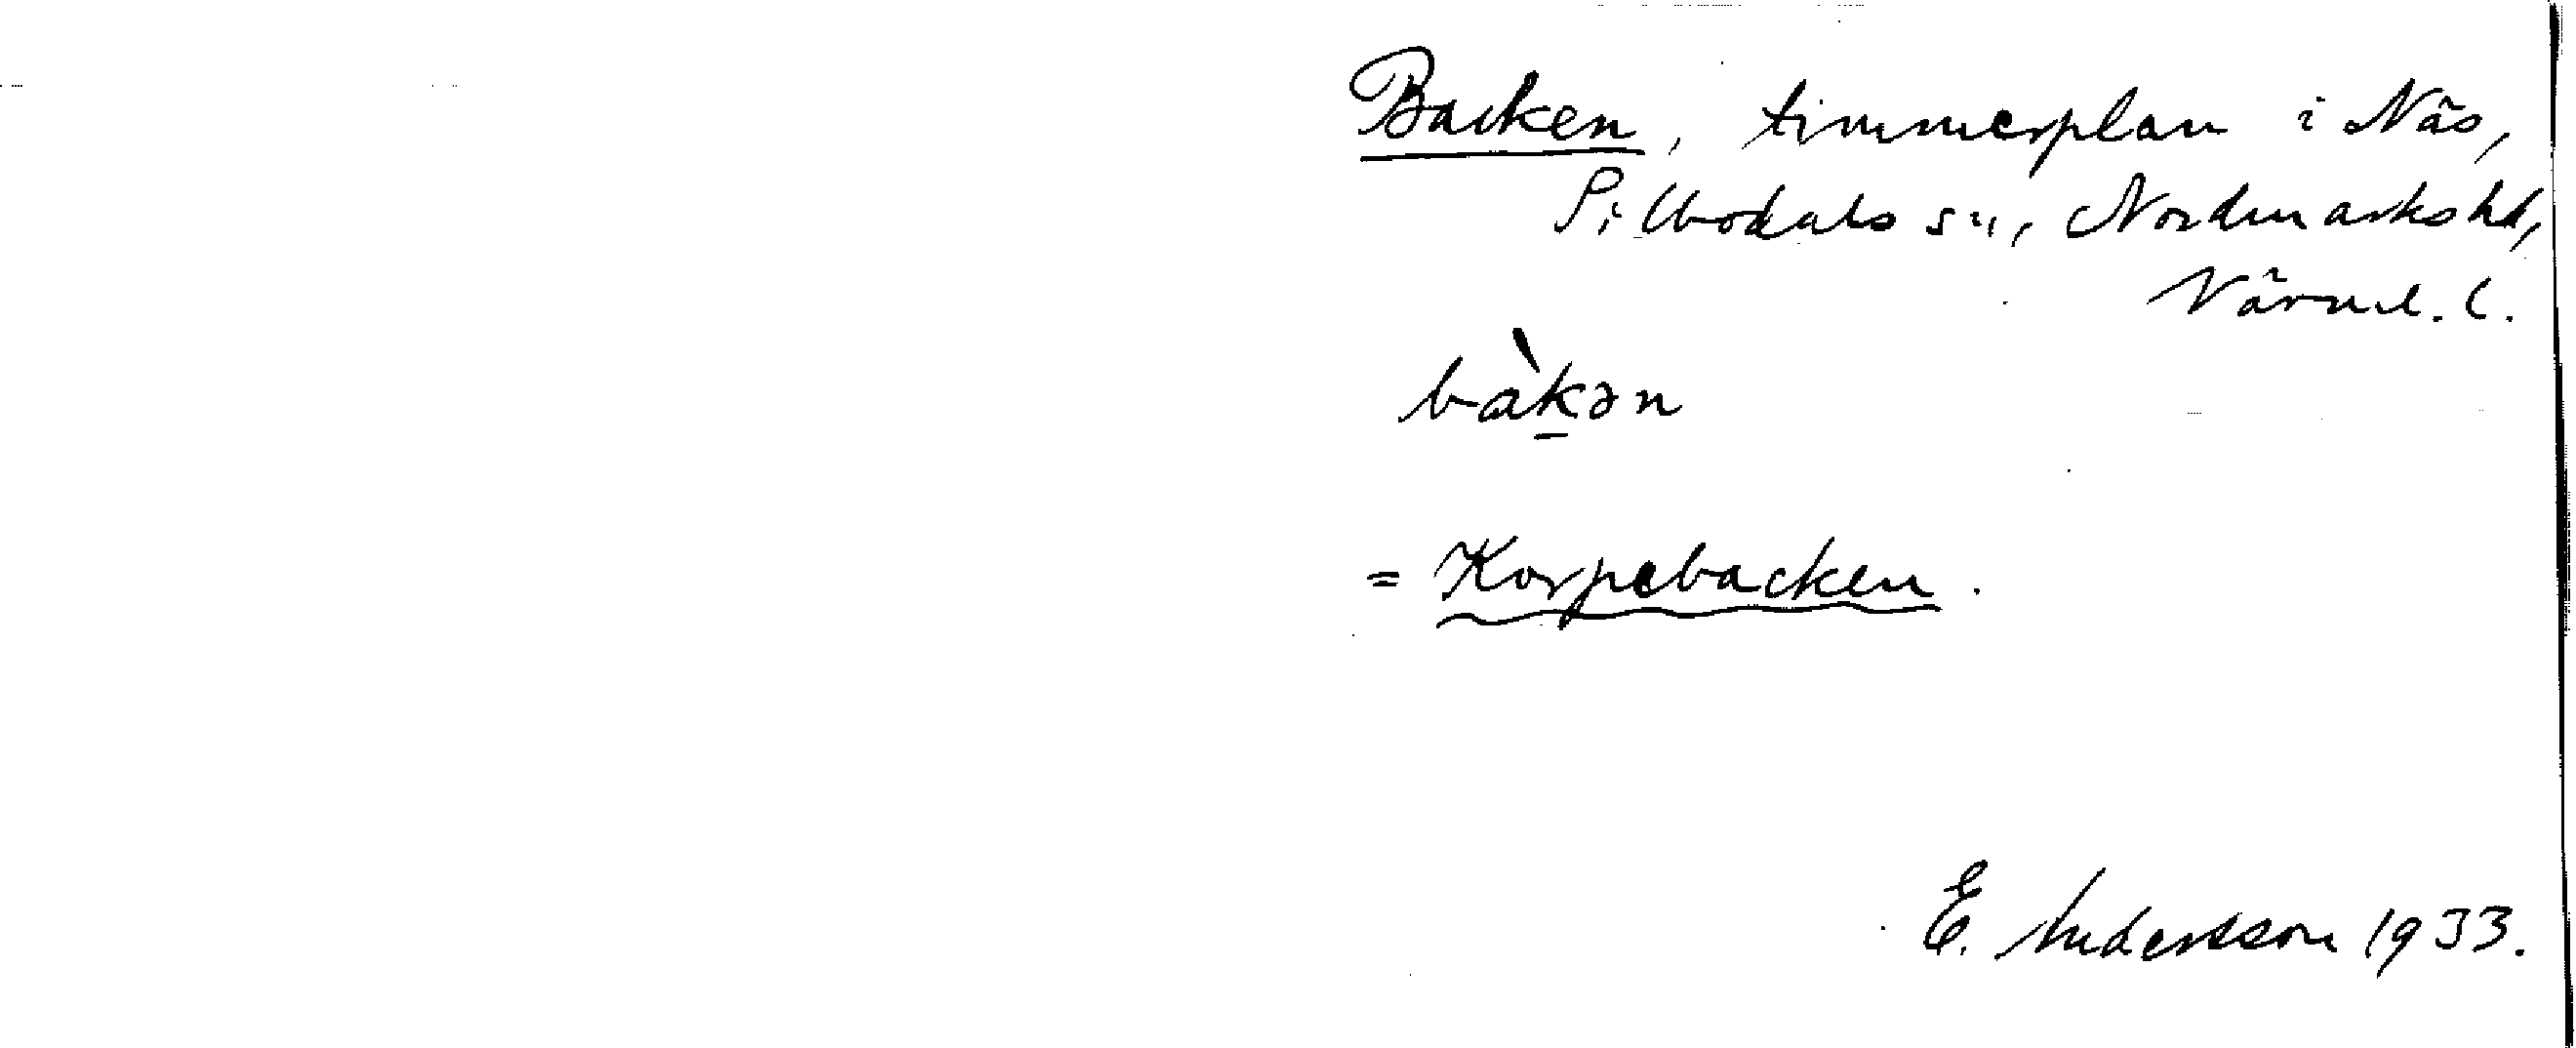 Backen, timmerplan i Näs,
Silbodals sn, Nordmarks hd,
Värml. l.
bàkən
= Korpebacken.
E. Andersson 1933.